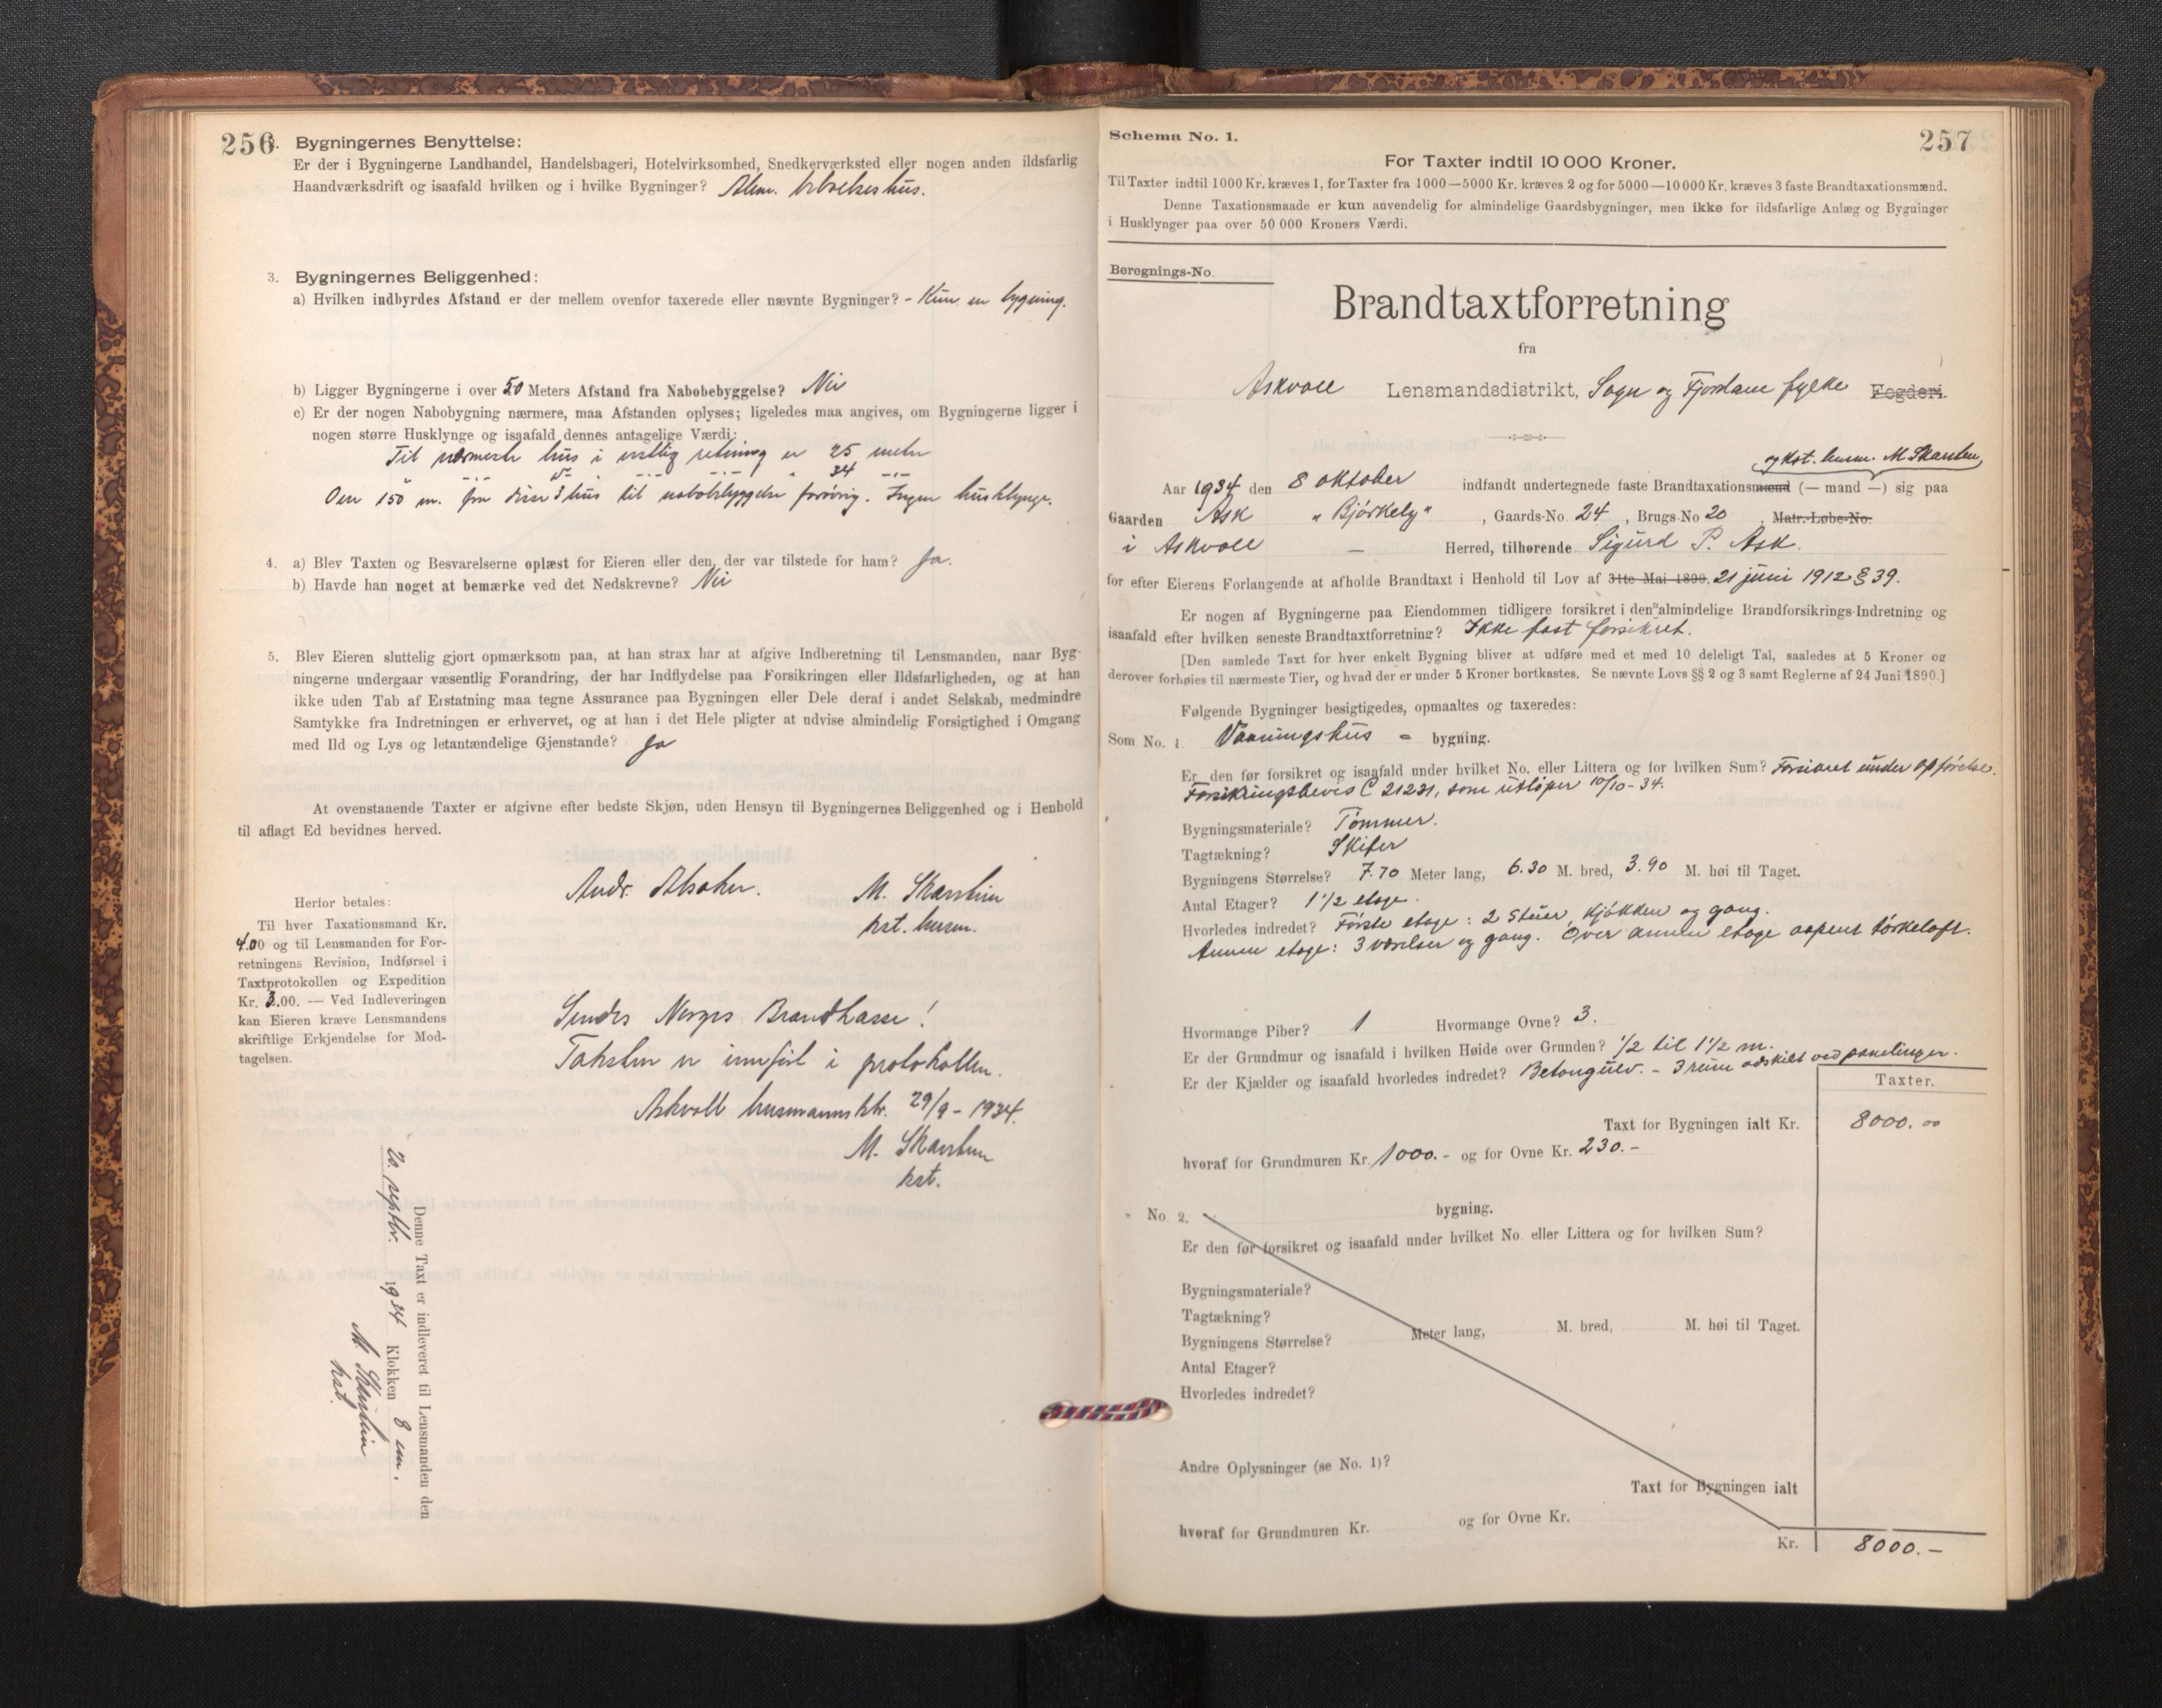 256
2. Bygningernes Benyttelse:
Er der i Bygningerne Landhandel, Handelsbageri, Hotelvirksomhed, Snedkerværksted eller nogen anden ildsfarlig
Haandværksdrift og isaafald hvilken og i hvilke Bygninger? Alm. beboelseshus.
3. Bygningernes Beliggenhed:
a) Hvilken indbyrdes Afstand er der mellem ovenfor taxerede eller nævnte Bygninger? - Kun en bygning.
b) Ligger Bygningerne i over 50 Meters Afstand fra Nabobebyggelse? Nei
c) Er der nogen Nabobygning nærmere, maa Afstanden oplyses; ligeledes maa angives, om Bygningerne ligger i
nogen større Husklynge og isaafald dennes antagelige Værdi:
Til nærmeste hus i vestlig retning er 25 meter
" -"- -"- -"- " 34 -"-
Over 150 m. fra disse 3 hus til nabobebyggelse forøvrig. Ingen husklynge.
4. a) Blev Taxten og Besvarelserne oplæst for Eieren eller den, der var tilstede for ham? Ja.
b) Havde han noget at bemærke ved det Nedskrevne? Nei
5. Blev Eieren sluttelig gjort opmærksom paa, at han strax har at afgive Indberetning til Lensmanden, naar Byg-
ningerne undergaar væsentlig Forandring, der har Indflydelse paa Forsikringen eller Ildsfarligheden, og at han
ikke uden Tab af Erstatning maa tegne Assurance paa Bygningen eller Dele deraf i andet Selskab, medmindre
Samtykke fra Indretningen er erhvervet, og at han i det Hele pligter at udvise almindelig Forsigtighed i Omgang
med Ild og Lys og letantændelige Gjenstande? Ja
At ovenstaaende Taxter er afgivne efter bedste Skjøn, uden Hensyn til Bygningernes Beliggenhed og i Henhold
til aflagt Ed bevidnes herved.
Andr. M. Skarstein
kst. lensm.
Herfor betales:
Til hver Taxationsmand Kr.
4.00 og til Lensmanden for For-
retningens Revision, Indførsel i
Taxtprotokollen og Expedition
Kr. 3.00. — Ved Indleveringen
kan Eieren kræve Lensmandens
skriftlige Erkjendelse for Mod-
tagelsen.
Sendes Norges Brandkasse!
Taksten er innført i protokollen.
Askvoll lensmannsktr. 29/9 - 1934.
M. Skarstein
kst.
Denne Taxt er indleveret til Lensmanden den
20. septbr. 1934 Klokken 8 em.
M Skarstein
kst.
Schema No. 1.
257
For Taxter indtil 10 000 Kroner.
Til Taxter indtil 1000 Kr. kræves 1, for Taxter fra 1000—5000 Kr. kræves 2 og for 5000—10 000 Kr. kræves 3 faste Brandtaxationsmænd.
Denne Taxationsmaade er kun anvendelig for almindelige Gaardsbygninger, men ikke for ildsfarlige Anlæg og Bygninger
i Husklynger paa over 50 000 Kroners Værdi.
Beregnings-No.
Brandtaxtforretning
fra
Askvoll Lensmandsdistrikt, Sogn og Fjordane fylke Fogderi.
og kst. lensm. M. Skarstein
Aar 1934 den 8 oktober indfandt undertegnede faste Brandtaxationsmænd (— mand —) sig paa
Gaarden Ask "Bjørkely", Gaards-No. 24, Brugs-No 20 Matr.-Løbe-No.
i Askvoll — Herred, tilhørende Sigurd P. Ask.
for efter Eierens Forlangende at afholde Brandtaxt i Henhold til Lov af 31te Mai 1890. 21 juni 1912 § 39.
Er nogen af Bygningerne paa Eiendommen tidligere forsikret i den almindelige Brandforsikrings-Indretning og
isaafald efter hvilken seneste Brandtaxtforretning? Ikke fast forsikret.
[Den samlede Taxt for hver enkelt Bygning bliver at udføre med et med 10 deleligt Tal, saaledes at 5 Kroner og
derover forhøies til nærmeste Tier, og hvad der er under 5 Kroner bortkastes. Se nævnte Lovs §§ 2 og 3 samt Reglerne af 24 Juni 1890.]
Følgende Bygninger besigtigedes, opmaaltes og taxeredes:
Som No. 1. Vaaningshus - bygning.
Er den før forsikret og isaafald under hvilket No. eller Littera og for hvilken Sum? Forsikret under opførelse.
Forsikringsbevis C 21231, som utløper 10/10-34.
Bygningsmateriale? Tømmer.
Tagtækning? Skifer
Bygningens Størrelse? 7.70 Meter lang, 6.30 M. bred, 3.90 M. høi til Taget.
Antal Etager? 1 1/2 etage.
Hvorledes indredet? Første etage: 2 stuer, kjøkken og gang.
Annen etage: 3 værelser og gang. Over annen etage aapent tørkeloft.
Hvormange Piber? 1 Hvormange Ovne? 3.
Er der Grundmur og isaafald i hvilken Høide over Grunden? 1/2 til 1 1/2 m.
Er der Kjælder og isaafald hvorledes indredet? Betongulv. - 3 rum adskilt ved panelinger.
Taxter.
Taxt for Bygningen ialt Kr. 8000.00
hvoraf for Grundmuren Kr. 1000.- og for Ovne Kr. 230.-
No. 2. bygning.
Er den før forsikret og isaafald under hvilket No. eller Littera og for hvilken Sum?
Bygningsmateriale?
Tagtækning?
Bygningens Størrelse? Meter lang, M. bred, M. høi til Taget.
Antal Etager?
Hvorledes indredet?
Andre Oplysninger (se No. 1)?
Taxt for Bygningen ialt
hvoraf for Grundmuren Kr. og for Ovne Kr.
Kr. 8000.-